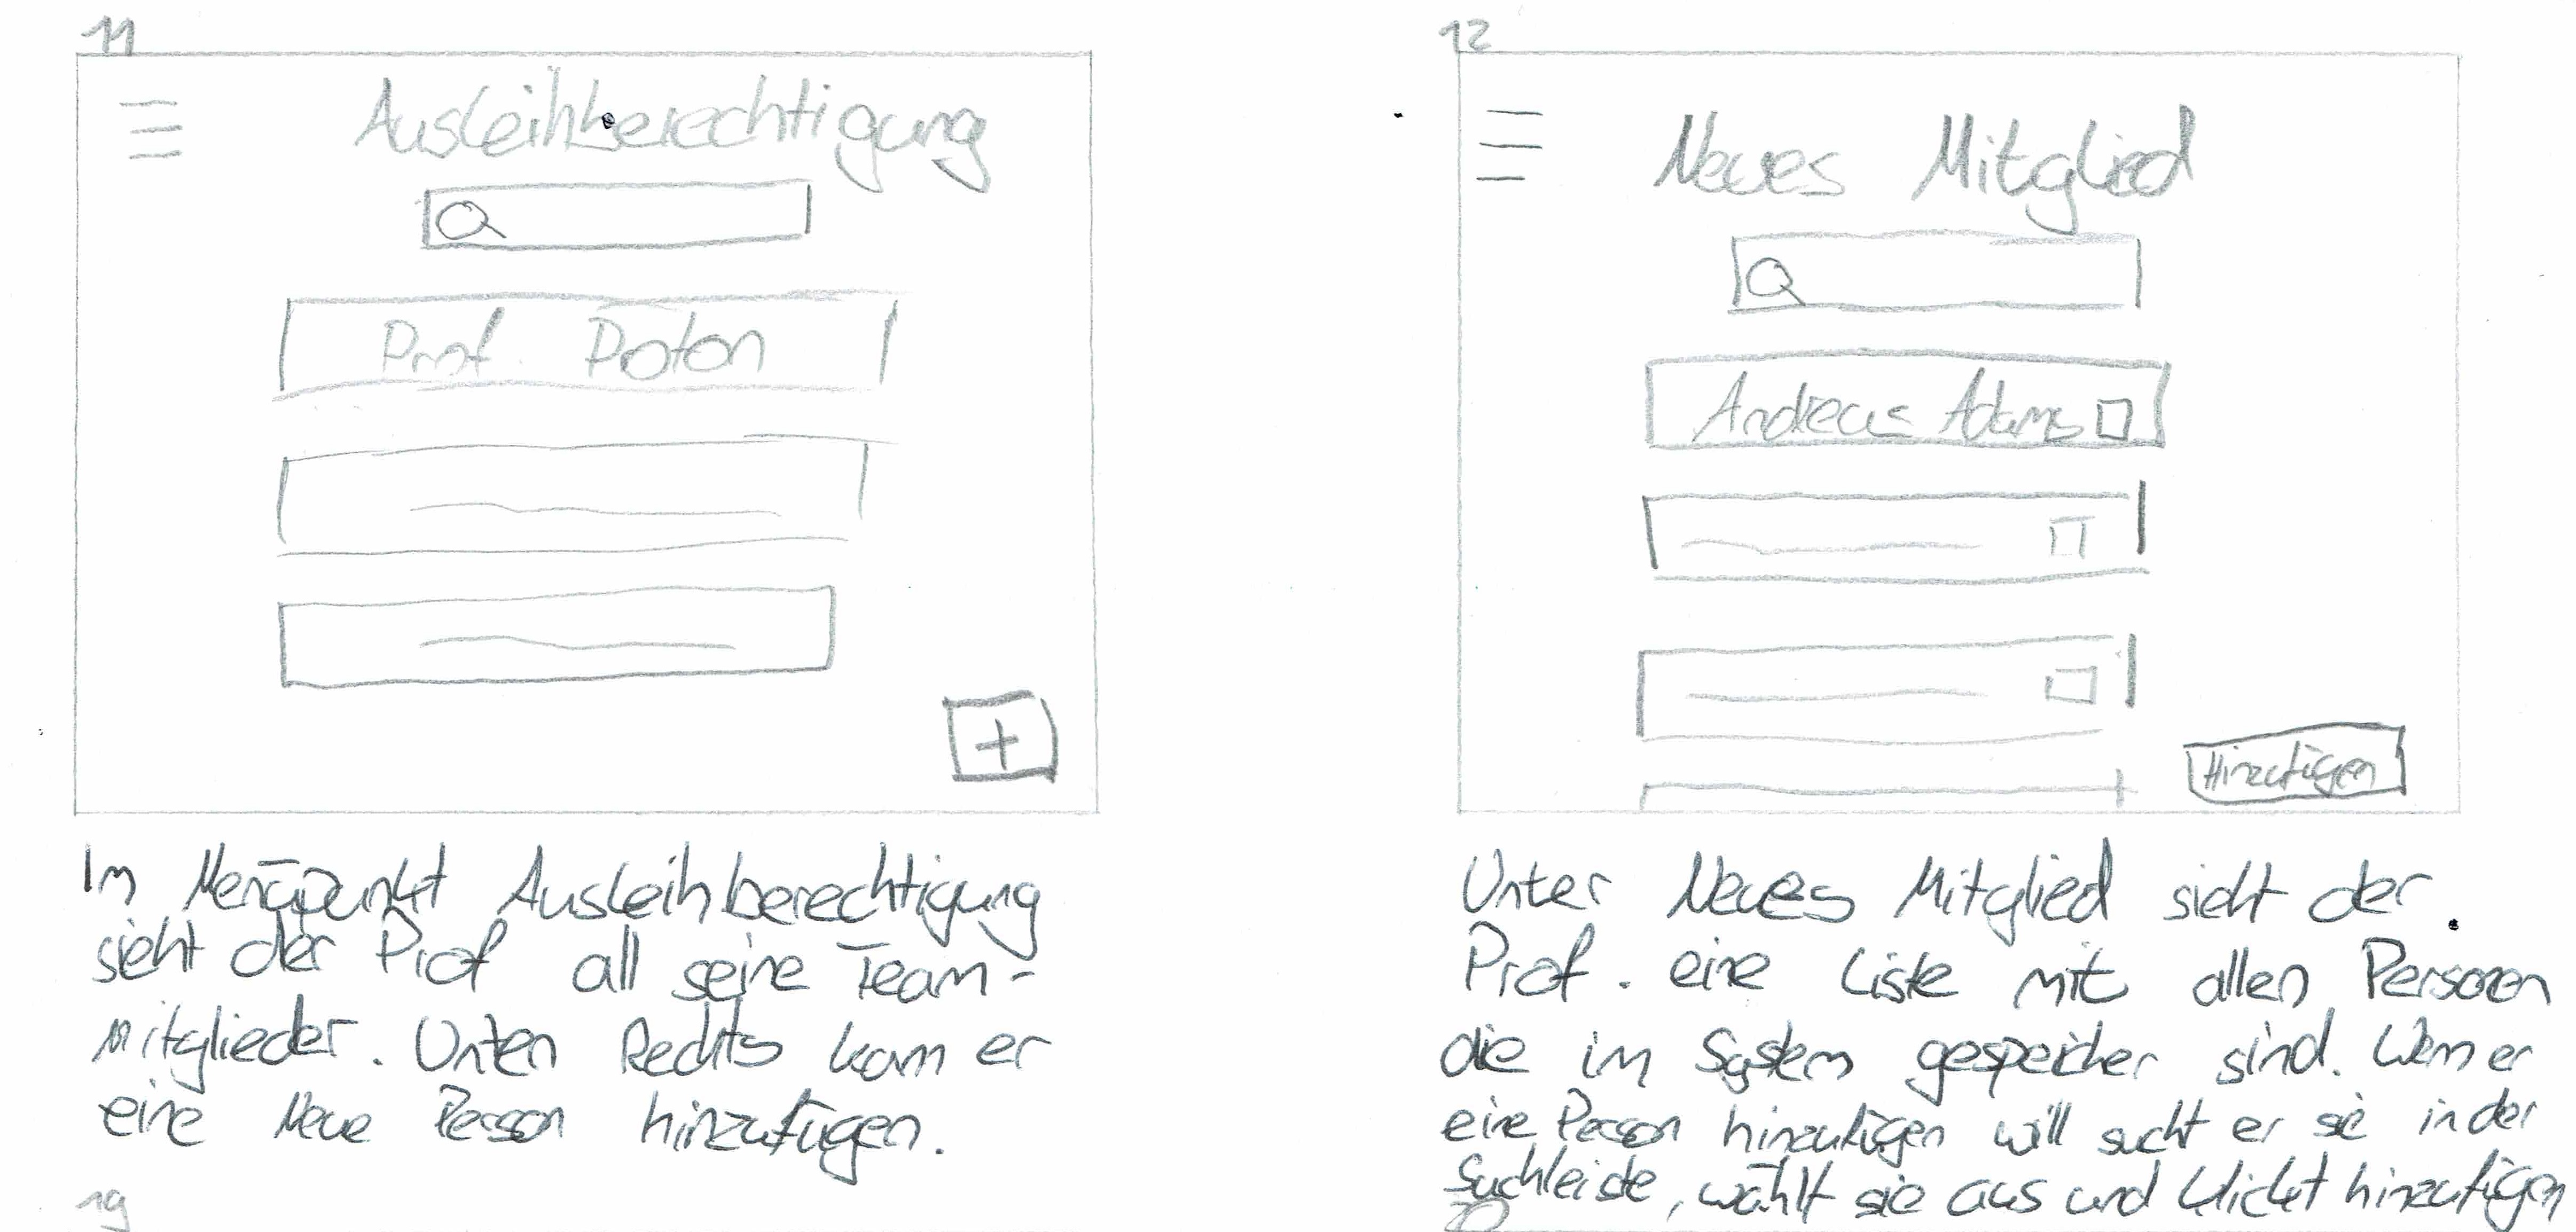 11
Ausleihberechtigung
Prof. Proton
Im Menüpunkt Ausleihberechtigung
sieht der Prof all seine Team-
Mitglieder. Unten Rechts kann er
eine Neue Person hinzufügen.
19
12
Neues Mitglied
Andreas Adams
Hinzufügen
Unter Neues Mitglied sieht der
Prof. eine Liste mit allen Personen
die im System gespeicher sind. Wenn er
eine Person hinzufügen will sucht er sie in der
Suchleiste, wählt sie aus und klickt hinzufügen